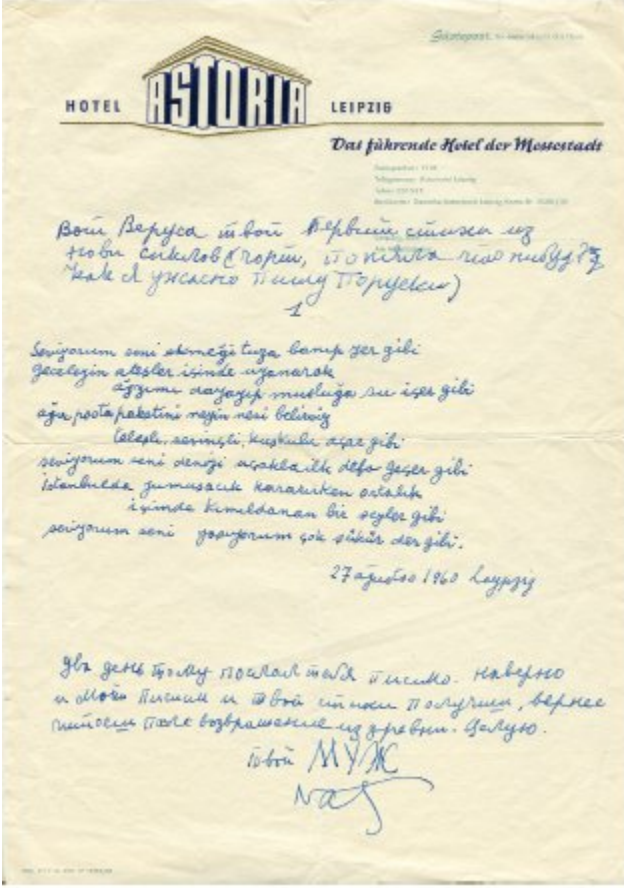 Gästepost
HOTEL ASTORIA LEIPZIG
Das führende Hotel der Messestadt
Вот Веруса твой первый стихи из
нови сиклов (чорт, поняла что нибудь?
как я ужасно пишу по руски)
1
Seviyorum seni ekmeği tuza banıp yer gibi
geceleyin ateşler içinde uyanarak
ağzımı dayayıp musluğa su içer gibi
ağır posta paketini neyin nesi belirsiz
telaşlı, sevinçli, kuşkulu açar gibi
seviyorum seni denizi uçakla ilk defa geçer gibi
İstanbulda yumuşacık kararırken ortalık
içimde kımıldanan bir şeyler gibi
seviyorum seni yaşıyorum çok şükür der gibi.
27 ağustos 1960 Laypzig
Два день тому послал тебя писмо. наверно
и мои писми и твой стихи получиш, вернее
после возвращение из древни. Целую.
твой МУЖ